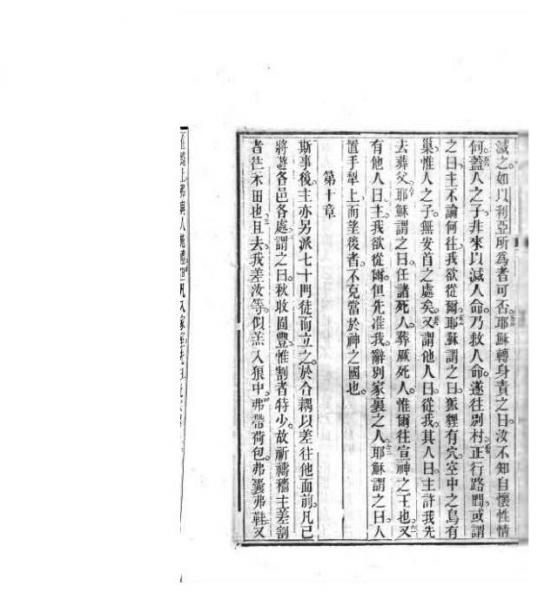 滅之如以利亞所爲者可否耶穌轉身責之曰汝不知自懷性情
何蓋人之子非來以滅人命乃救人命遂往別村正行路間或謂
之曰主不論何往我欲從爾耶穌謂之曰狐狸有穴空中之鳥有
巢惟人之子無安首之處矣又謂他人曰從我其人曰主許我先
去葬父耶穌謂之曰任諸死人葬厥死人惟爾往宣神之王也又
有他人曰主我欲從爾但先准我辭別家裏之人耶穌謂之曰人
置手犁上而望後者不克當於神之國也
第十章
斯事後主亦另派七十門徒而立之於合耦以差往他面前凡己
將諸各邑各處謂之曰秋收固豐惟割者特少故祈禱穡主差割
者往禾田也且去我差汝等似羔入狼中弗帶荷包弗囊弗鞋又